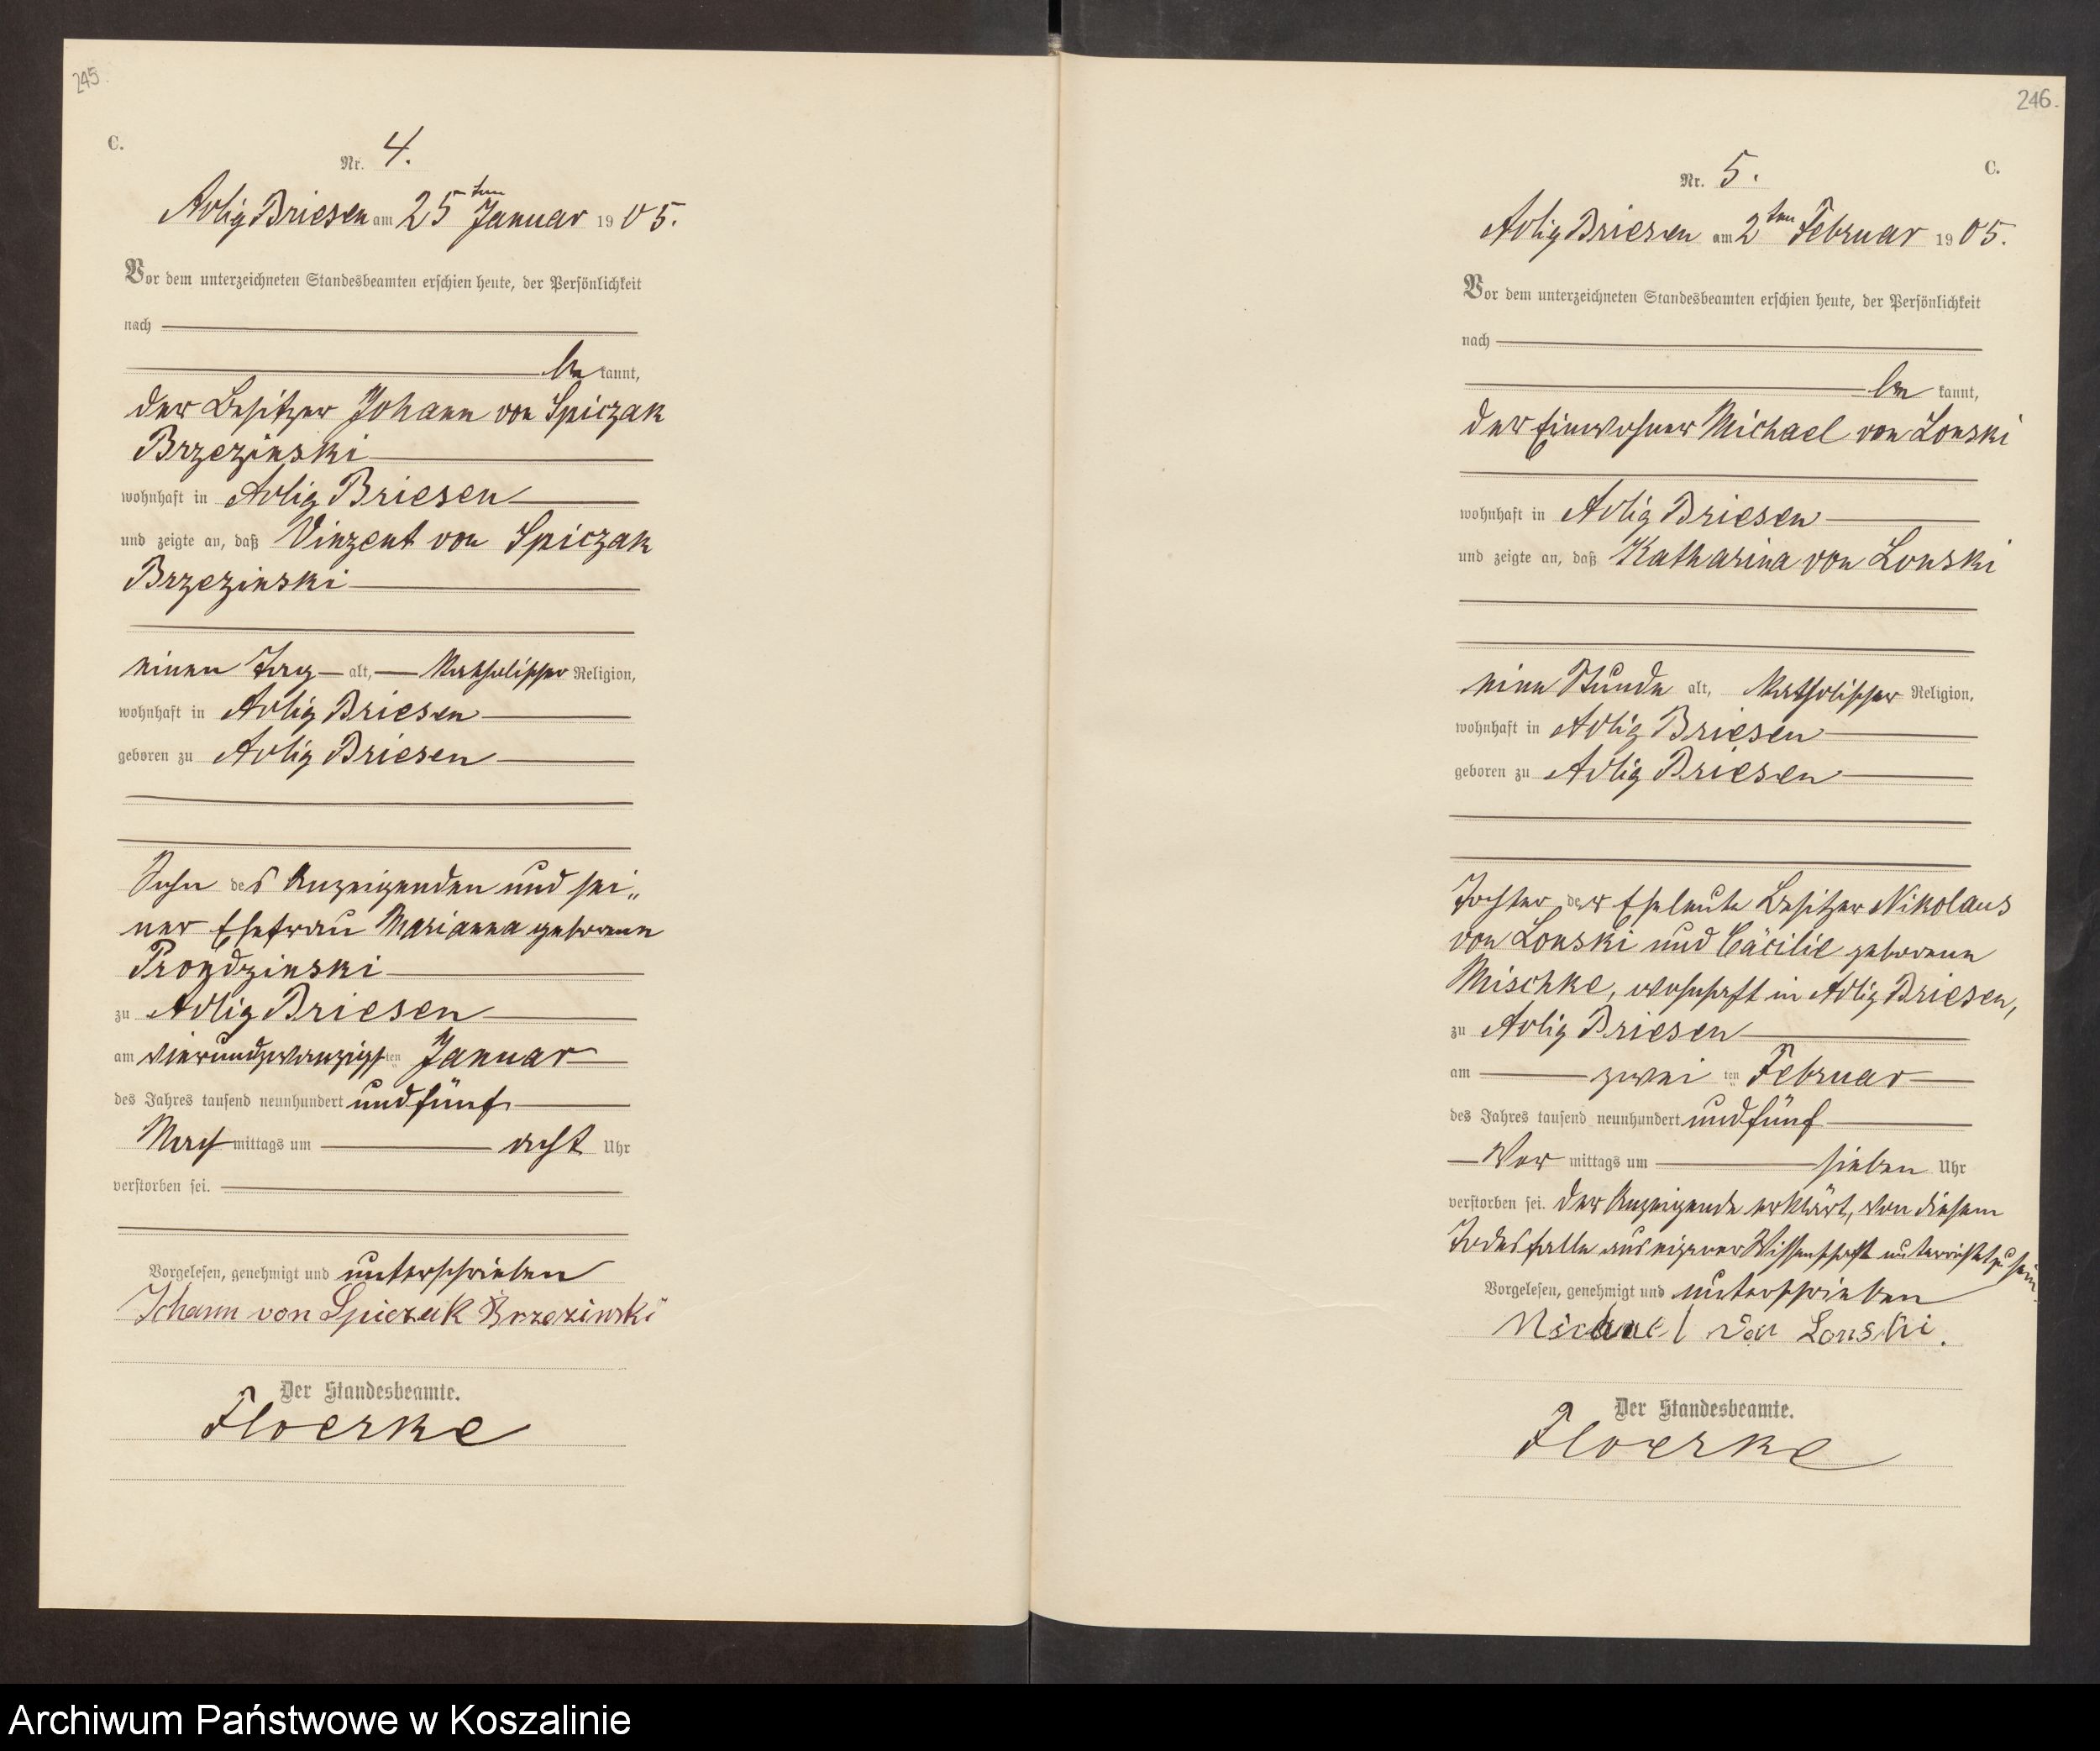 245.
C.
Nr. 4.
Adlig Briesen am 25ten Januar 1905.
Vor dem unterzeichneten Standesbeamten erschien heute, der Persönlichkeit
nach
be kannt,
der Besitzer Johann von Spiczak
Brzezinski
wohnhaft in Adlig Briesen
und zeigte an, daß Vinzent von Spiczak
Brzezinski
einen Tag alt, katholischer Religion,
wohnhaft in Adlig Briesen
geboren zu Adlig Briesen
Sohn des Anzeigenden und sei„
ner Ehefrau Marianna geborene
Prondzinski
zu Adlig Briesen
am vierundzwanzigsten Januar
des Jahres tausend neunhundert und fünf
Nachmittags um acht Uhr
verstorben sei.
Vorgelesen, genehmigt und unterschrieben
Johann von Spiczak Brzezinski
Der Standesbeamte.
Floerke
246.
C.
Nr. 5.
Adlig Briesen am 2ten Februar 1905.
Vor dem unterzeichneten Standesbeamten erschien heute, der Persönlichkeit
nach
be kannt,
der Einwohner Michael von Lonski
wohnhaft in Adlig Briesen
und zeigte an, daß Katharina von Lonski
eine Stunde alt, katholischer Religion,
wohnhaft in Adlig Briesen
geboren zu Adlig Briesen
Tochter der Eheleute Besitzer Nikolaus
von Lonski und Cäcilie geborene
Mischke, wohnhaft in Adlig Briesen,
zu Adlig Briesen
am zwei ten Februar
des Jahres tausend neunhundert und fünf
Vor mittags um sieben Uhr
verstorben sei. Der Anzeigende erklärt, von diesem
Todesfalle aus eigener Wissenschaft unterrichtet zu sein.
Vorgelesen, genehmigt und unterschrieben
Michael von Lonski.
Der Standesbeamte.
Floerke
Archiwum Państwowe w Koszalinie